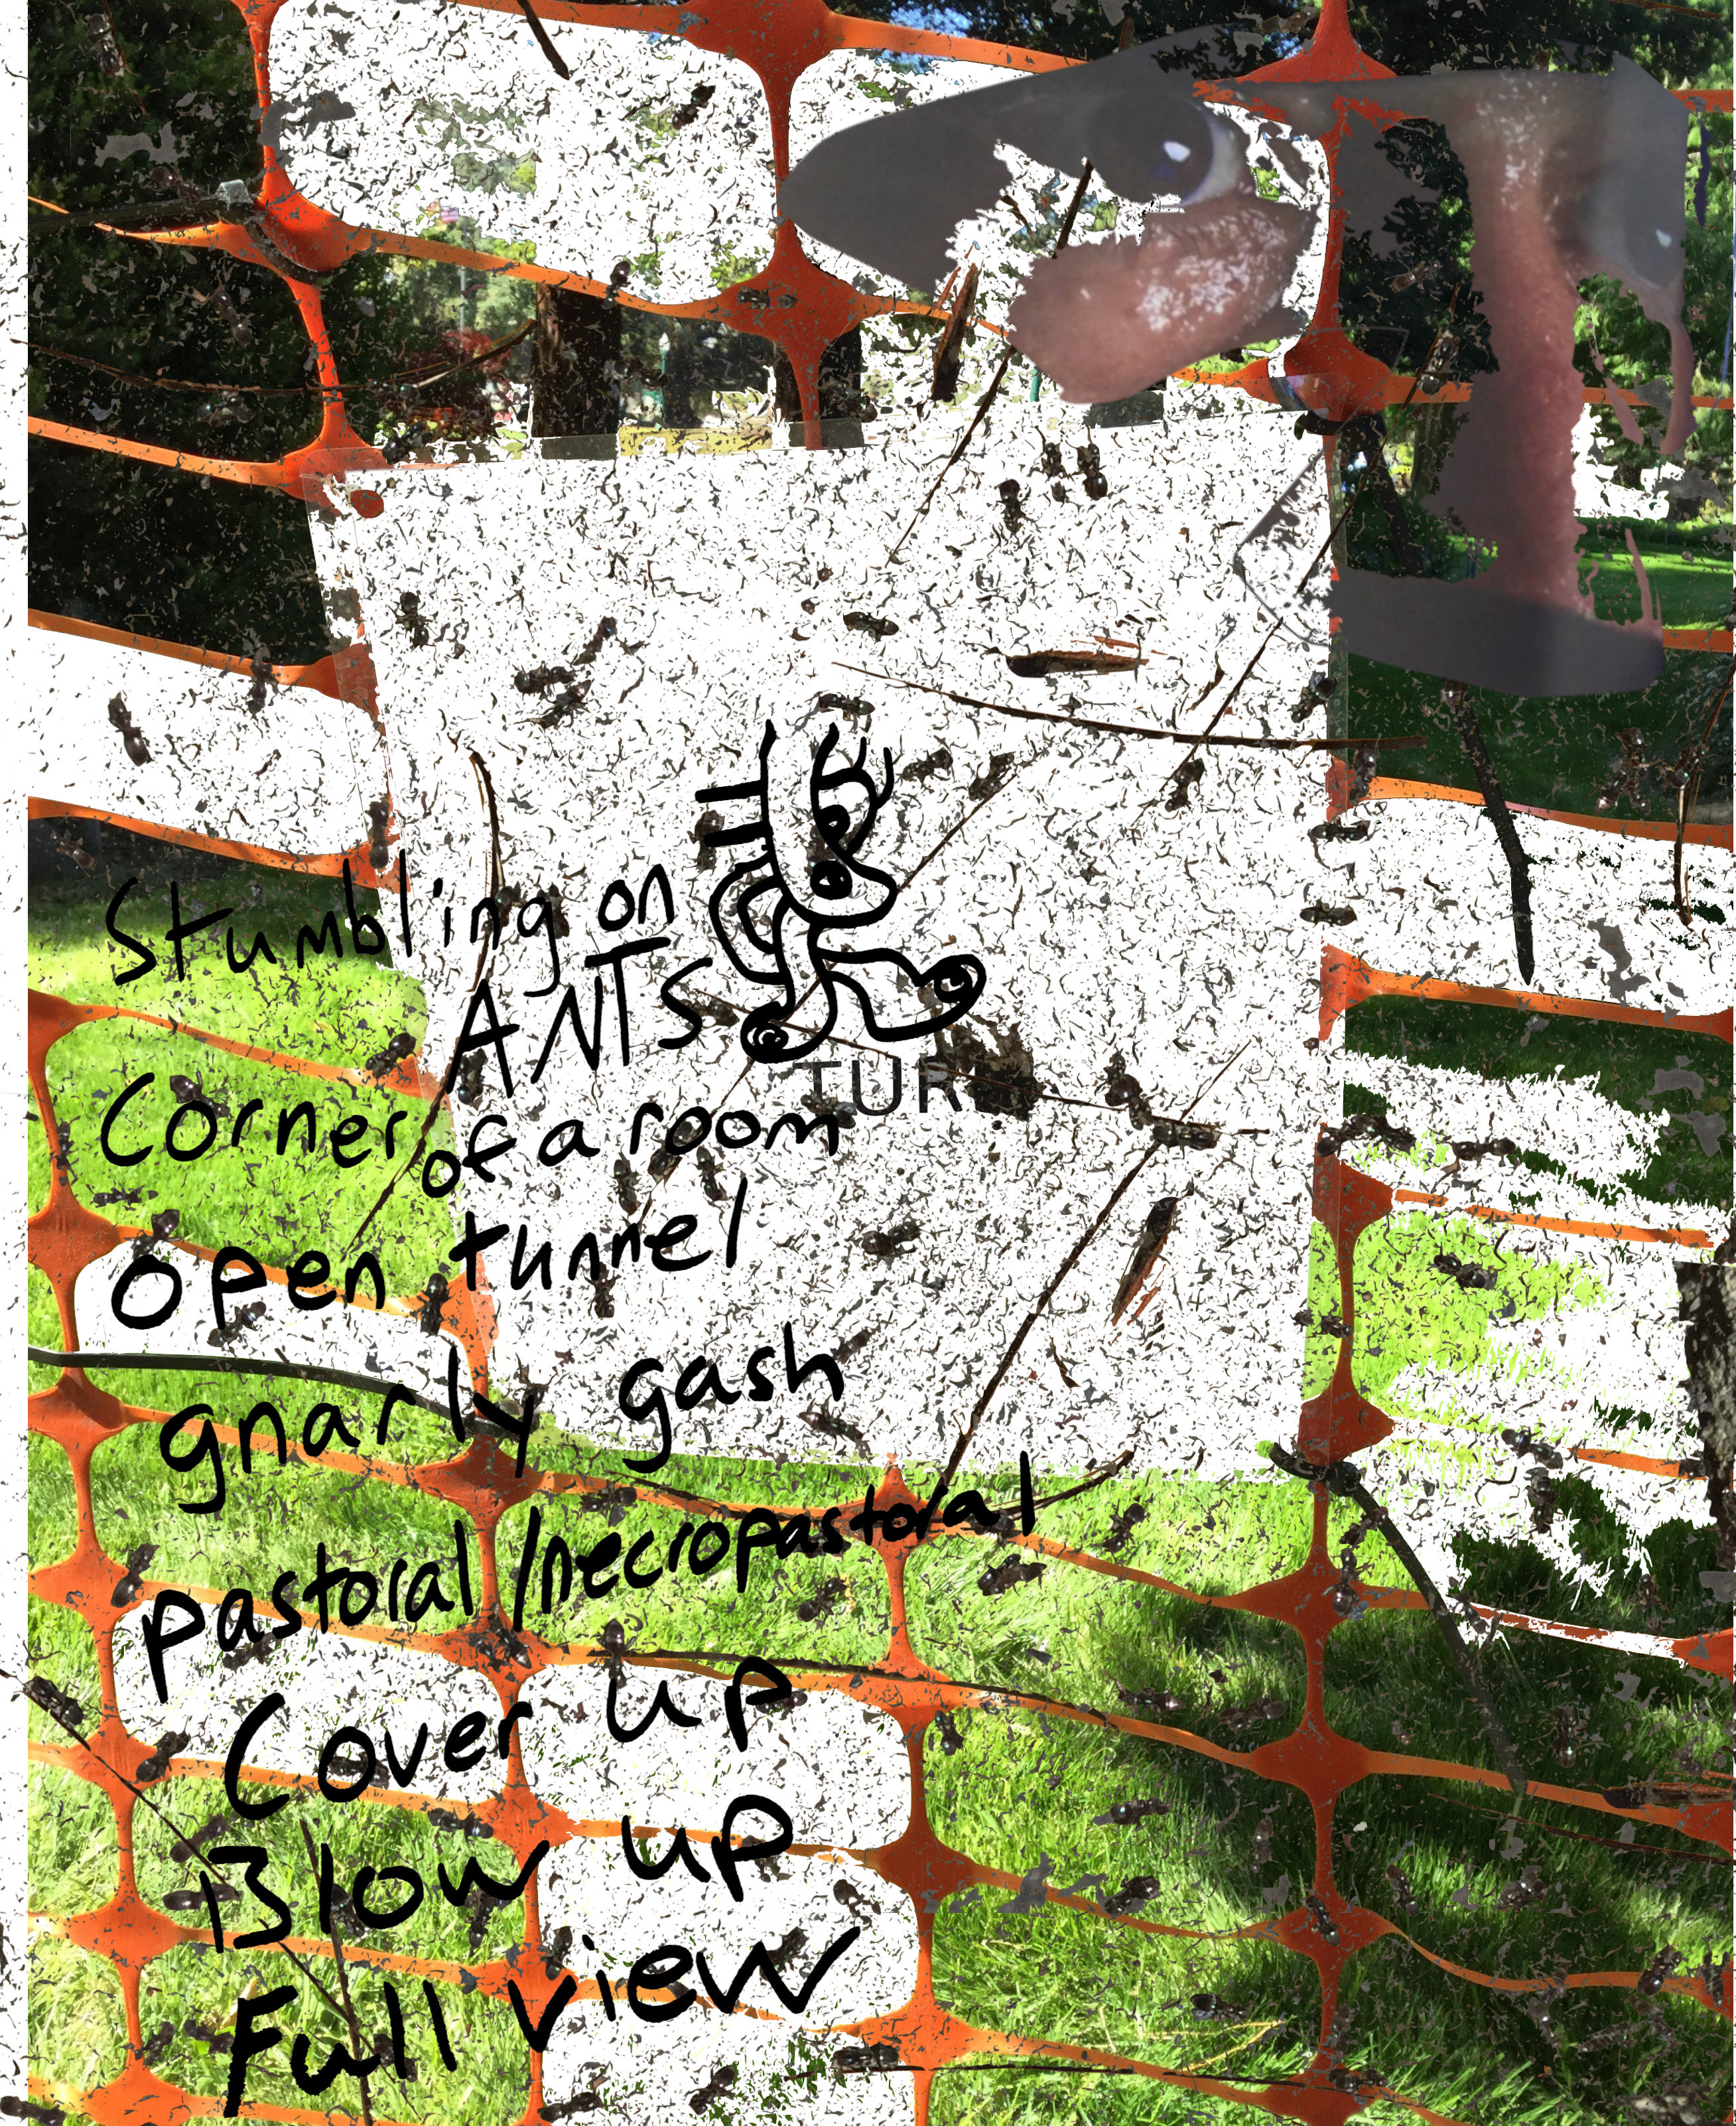 Stumbling on
ANTS
TUR
Corner of a room
open tunnel
gnarly gash
pastoral/necropastoral
Cover up
Blow up
Full view